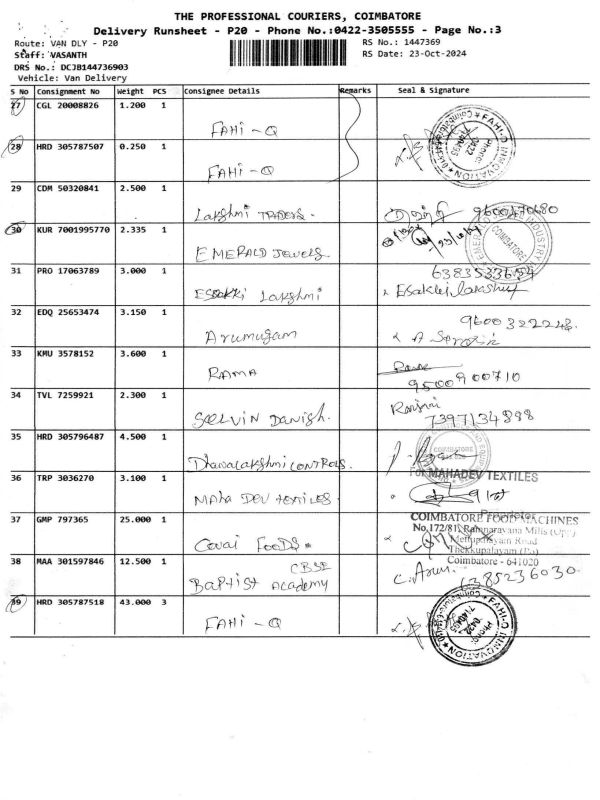 THE PROFESSIONAL COURIERS, COIMBATORE
Delivery Runsheet - P20 - Phone No.:0422-3505555 - Page No.:3
Route: VAN DLY - P20
RS No.: 1447369
Staff: VASANTH
RS Date: 23-Oct-2024
DRS No.: DCJB144736903
Vehicle: Van Delivery
S No Consignment No Weight PCS Consignee Details Remarks Seal & Signature
27 CGL 20008826 1.200 1
FAHI - Q
28 HRD 305787507 0.250 1
FAHI - Q
29 CDM 50320841 2.500 1
Lakshmi TRADERS.
30 KUR 7001995770 2.335 1
EMERALD Jewels
31 PRO 17063789 3.000 1
Esakki Lakshmi
32 EDQ 25653474 3.150 1
9600322248
Arumugam
33 KMU 3578152 3.600 1
RAMA
9500900710
34 TVL 7259921 2.300 1
SEELVIN Danish.
7397134898
35 HRD 305796487 4.500 1
COIMBATORE
Dhanalakshmi CONTROLS.
36 TRP 3036270 3.100 1
For MAHADEV TEXTILES
MAHA DEV TEXTILES
Proprietor
37 GMP 797365 25.000 1
COIMBATORE FOOD MACHINES
No.172/81, Ramnarayana Mills (Opp)
Mettupalayam Road
Thekkupalayam (Po)
Covai FOODS.
38 MAA 301597846 12.500 1
Coimbatore - 641020
CBSE
Baptist Academy
C. Arun.
6385236030
39 HRD 305787518 43.000 3
FAHI - Q
FAHI-Q INNOVATION